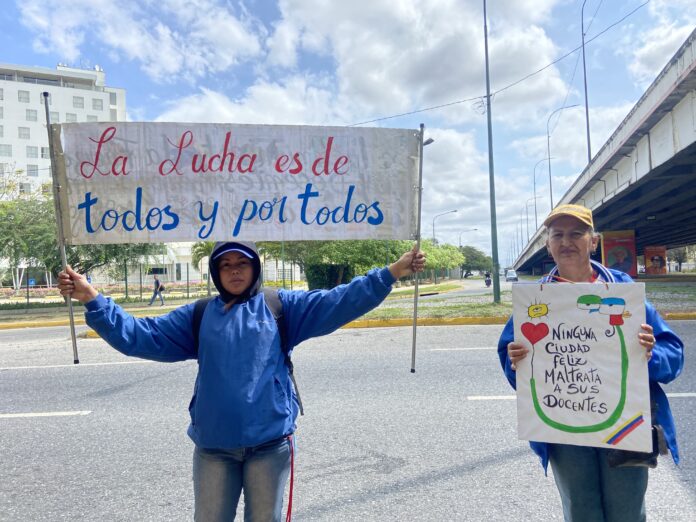 La Lucha es de
todos y por todos
NINGUNA
CIUDAD
FELIZ
MALTRATA
A SUS
DOCENTES